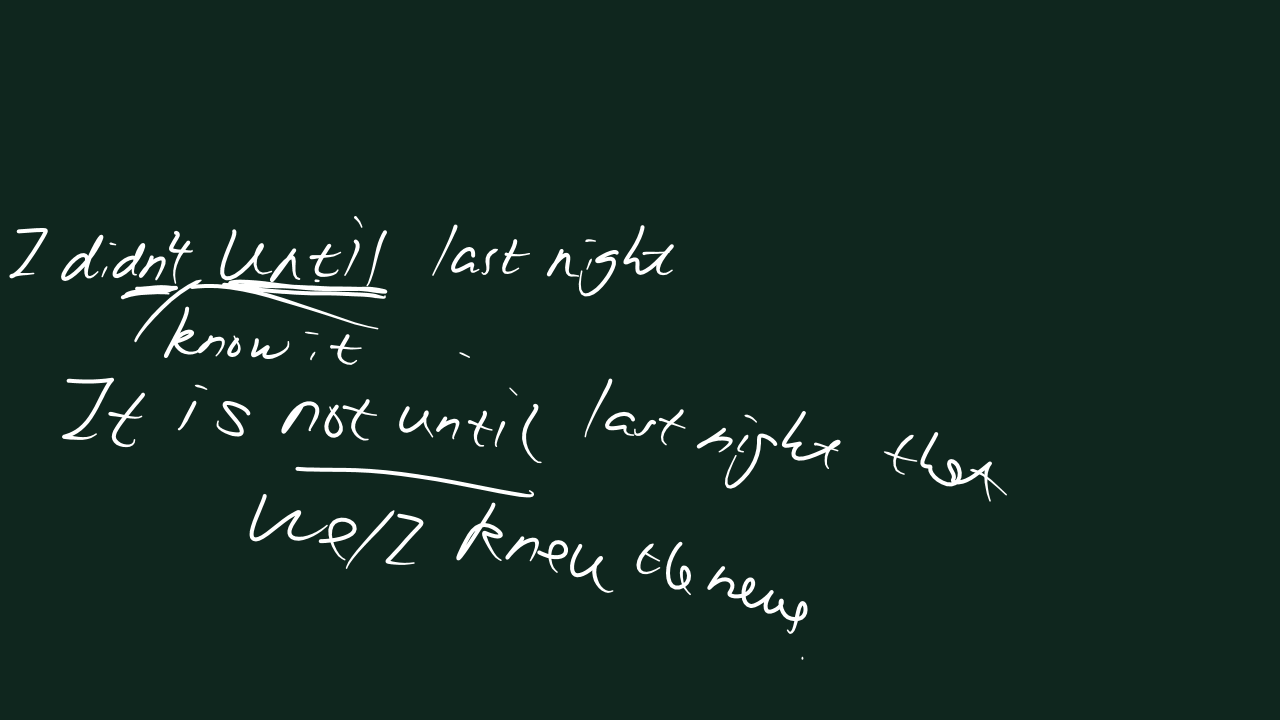 I didn't until last night
know it
It is not until last night that
we/I knew the news